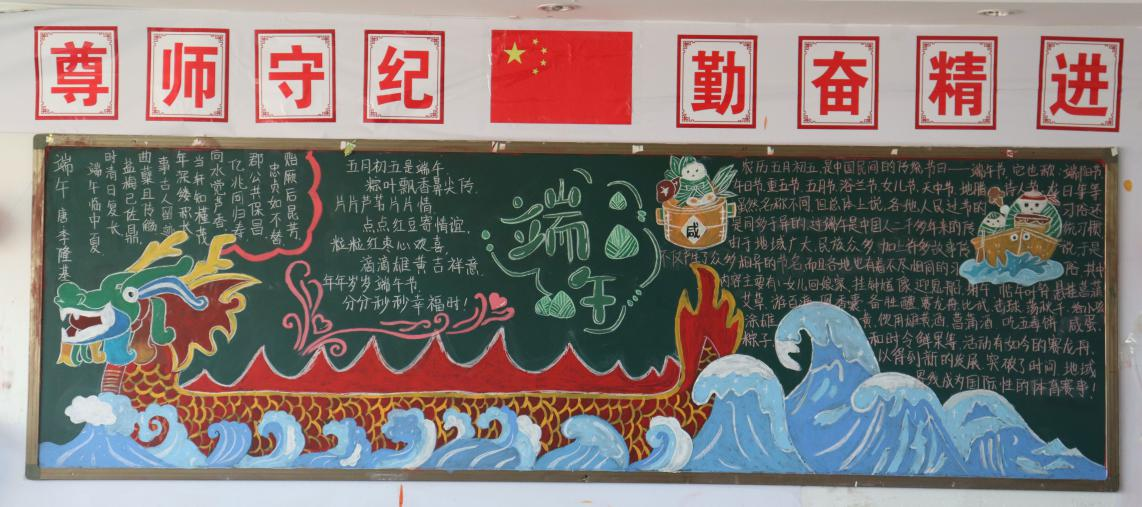 尊师守纪
勤奋精进
端午 唐 李隆基
端午临中夏
时清日复长
盐梅已佐鼎
曲糵且传觞
事古人留迹
年深缕积长
当轩知槿茂
向水觉芦香
亿兆同归寿
郡公共保昌
忠贞如不替
贻厥后昆芳
五月初五是端午
粽叶飘香鼻尖传
片片芦苇片片情
点点红豆寄情谊
粒粒红枣心欢喜
滴滴雄黄吉祥意
年年岁岁端午节
分分秒秒幸福时!
端午
咸
农历五月初五,是中国民间的传统节日——端午节,它也被:端阳节
午日节、重五节、五月节、浴兰节、女儿节、天中节、地腊、诗人节、龙日等等
虽然名称不同,但总体上说,各地人民过节的习俗还
是同多于异的。过端午是中国人二千多年来的传统习惯
由于地域广大,民族众多,加上许多故事传说,于是
不仅产生了众多相异的节名,而且各地也有着不尽相同的习俗,其中
内容主要有:女儿回娘家、挂钟馗像、迎鬼船、
艾草、游百病、佩香囊、备牲醴、赛龙舟、比武、击球、荡秋千、
涂雄黄、饮用雄黄酒、菖蒲酒、吃五毒饼、咸蛋、
粽子和时令鲜果等,活动有如今的赛龙舟,
以得到新的发展,突破了时间、地域
界线成为国际性的体育赛事!